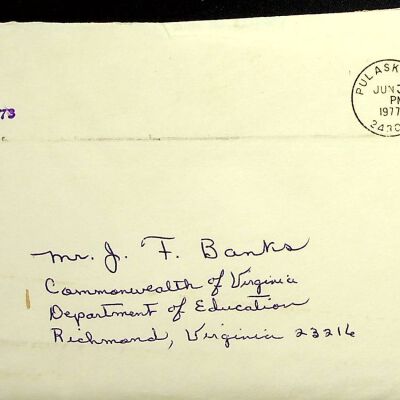 PULASK
JUN
PM
1977
2430
73
Mr. J. F. Banks
Commonwealth of Virginia
Department of Education
Richmond, Virginia 23216